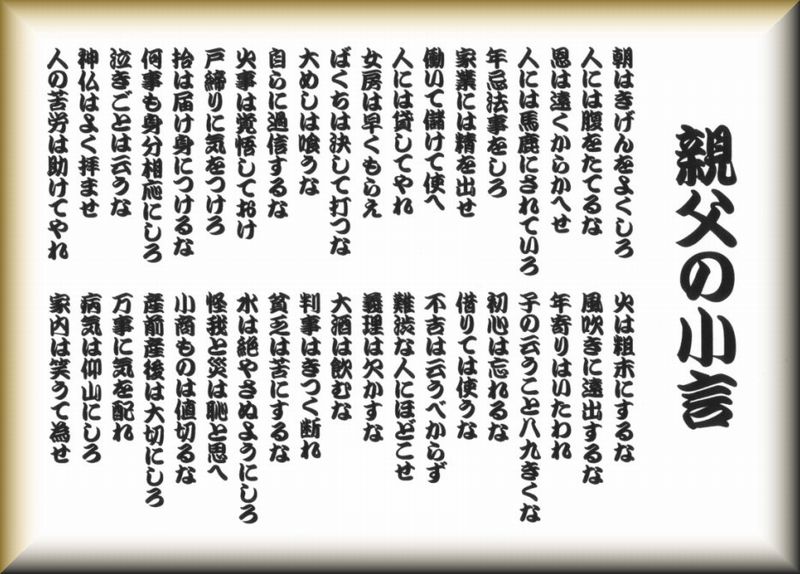 親父の小言
朝はきげんをよくしろ
人には腹をたてるな
恩は遠くからかへせ
人には馬鹿にされていろ
年忌法事をしろ
家業には精を出せ
働いて儲けて使へ
人には貸してやれ
女房は早くもらえ
ばくちは決して打つな
大めしは喰うな
自らに過信するな
火事は覚悟しておけ
戸締りに気をつけろ
拾は届け身につけるな
何事も身分相応にしろ
泣きごとは云うな
神仏はよく拝ませ
人の苦労は助けてやれ
火は粗末にするな
風吹きに遠出するな
年寄りはいたわれ
子の云うこと八九きくな
初心は忘れるな
借りては使うな
不吉は云うべからず
難渋な人にほどこせ
義理は欠かすな
大酒は飲むな
判事はきつく断れ
貧乏は苦にするな
水は絶やさぬようにしろ
怪我と災は恥と思へ
小商ものは値切るな
産前産後は大切にしろ
万事に気を配れ
病気は仰山にしろ
家内は笑うて為せ